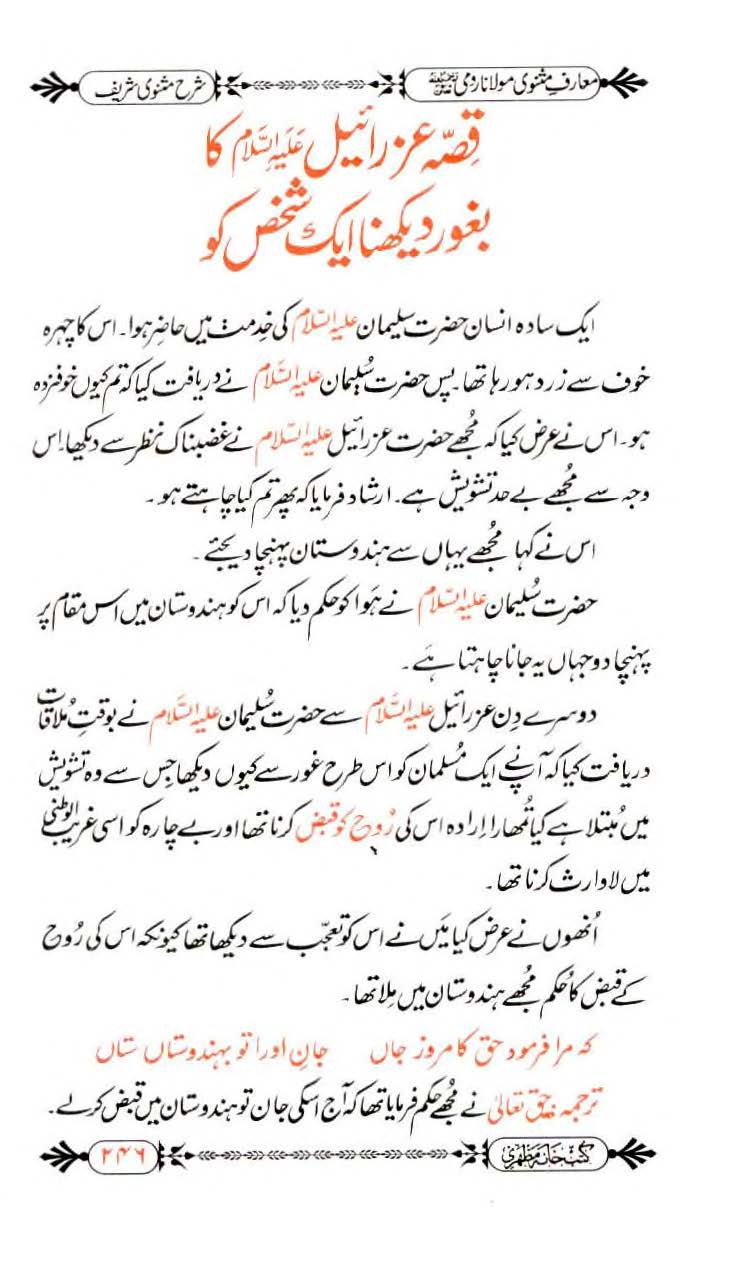 معارفِ مثنوی مولانا رومی رحمۃ اللہ علیہ
شرح مثنوی شریف
قِصّہ عزرائیل عَلَیہِ السَّلَام کا
بغور دیکھنا ایک شخص کو
ایک سادہ انسان حضرت سلیمان علیہ السّلام کی خِدمت میں حاضِر ہوا۔ اس کا چہرہ
خوف سے زرد ہو رہا تھا۔ پس حضرت سُلیمان علیہ السَّلام نے دریافت کیا کہ تم کیوں خوفزدہ
ہو۔ اس نے عرض کیا کہ مُجھے حضرت عزرائیل علیہ السّلام نے غضبناک نظر سے دیکھا۔ اِس
وجہ سے مُجھے بے حد تشویش ہے۔ ارشاد فرمایا کہ پھر تم کیا چاہتے ہو۔
اس نے کہا مُجھے یہاں سے ہندوستان پہنچا دیجئے۔
حضرت سُلیمان علیہ السّلام نے ہَوا کو حکم دیا کہ اس کو ہندوستان میں اس مقام پر
پہنچا دو جہاں یہ جانا چاہتا ہَے۔
دوسرے دِن عزرائیل علیہ السَّلام سے حضرت سُلیمان علیہ السَّلام نے بوقتِ مُلاقات
دریافت کیا کہ آپنے ایک مُسلمان کو اس طرح غور سے کیوں دیکھا جِس سے وہ تشویش
میں مُبتلا ہے کیا تُمھارا اِرادہ اس کی رُوح کو قبض کرنا تھا اور بے چارہ کو اسی غریب الوطنی
میں لاوارث کرنا تھا۔
اُنھوں نے عرض کیا مَیں نے اس کو تعجّب سے دیکھا تھا کیونکہ اس کی رُوح
کے قبض کا حُکم مُجھے ہندوستان میں مِلا تھا۔
کہ مرا فرمود حق کامروز جاں جانِ اورا تو بہندوستاں ستاں
ترجمہ: حق تعالیٰ نے مُجھے حکم فرمایا تھا کہ آج اسکی جان تو ہندوستان میں قبض کرلے۔
کتب خانہ مظہری
۲۴۶